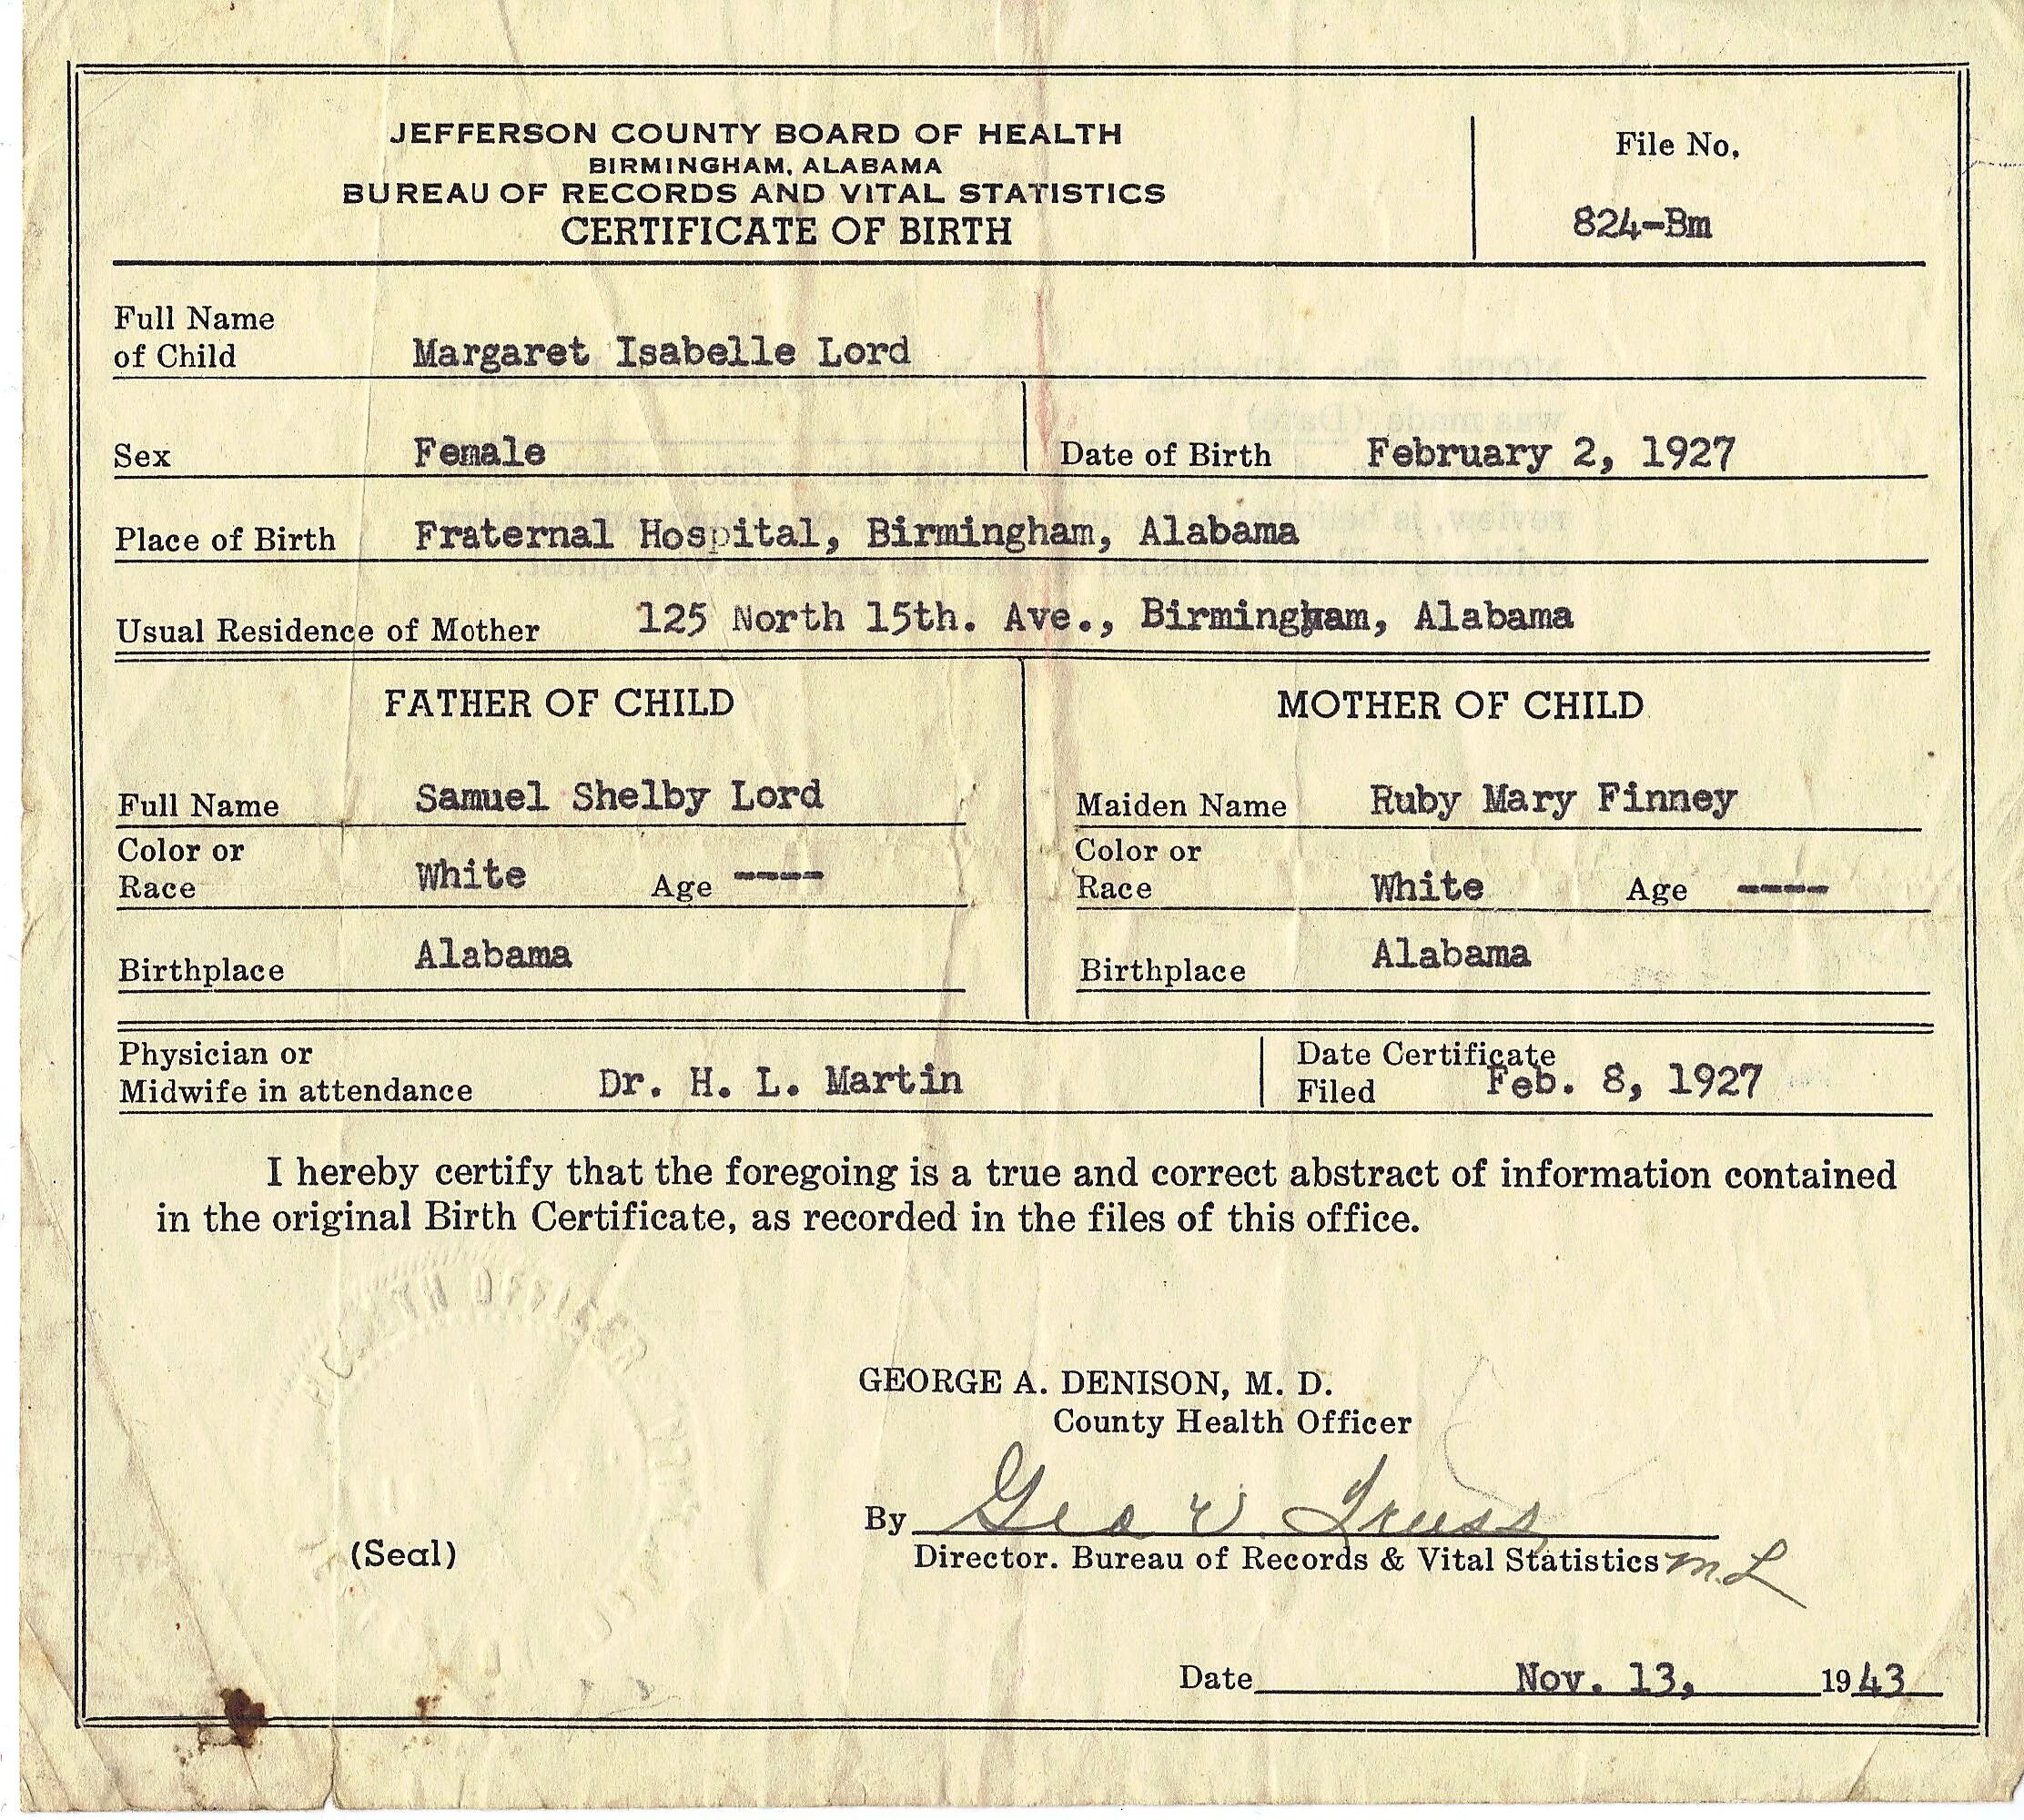 JEFFERSON COUNTY BOARD OF HEALTH
BIRMINGHAM, ALABAMA
BUREAU OF RECORDS AND VITAL STATISTICS
CERTIFICATE OF BIRTH
File No.
824-Bm
Full Name
of Child Margaret Isabelle Lord
Sex Female Date of Birth February 2, 1927
Place of Birth Fraternal Hospital, Birmingham, Alabama
Usual Residence of Mother 125 North 15th. Ave., Birmingham, Alabama
FATHER OF CHILD
Full Name Samuel Shelby Lord
Color or
Race White Age ----
Birthplace Alabama
MOTHER OF CHILD
Maiden Name Ruby Mary Finney
Color or
Race White Age ----
Birthplace Alabama
Physician or
Midwife in attendance Dr. H. L. Martin
Date Certificate
Filed Feb. 8, 1927
I hereby certify that the foregoing is a true and correct abstract of information contained
in the original Birth Certificate, as recorded in the files of this office.
HEALTH OFFICER
GEORGE A. DENISON, M. D.
County Health Officer
By Geo V. Truss
Director. Bureau of Records & Vital Statistics M.L
(Seal)
Date Nov. 13, 1943